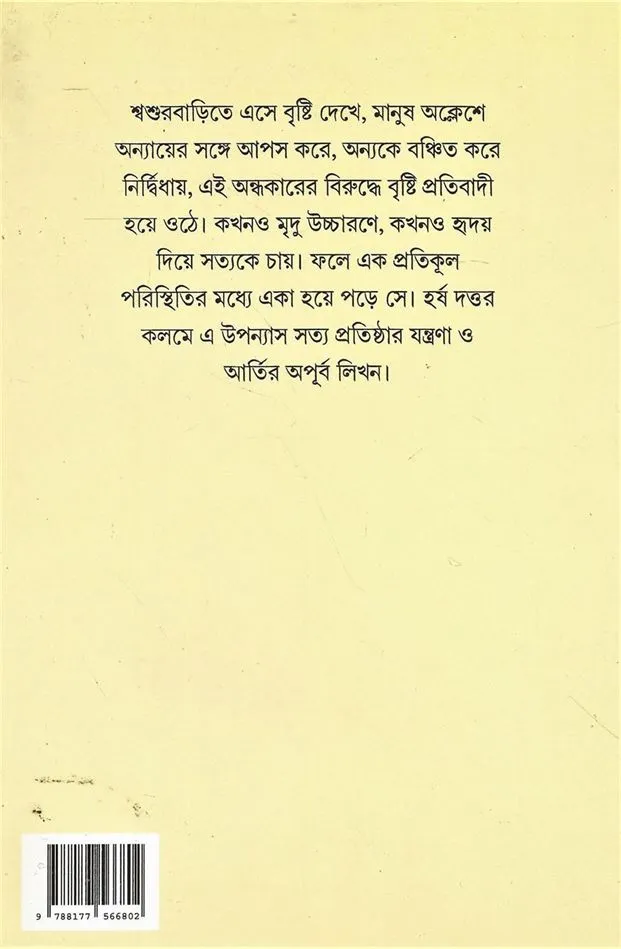 শ্বশুরবাড়িতে এসে বৃষ্টি দেখে, মানুষ অক্লেশে
অন্যায়ের সঙ্গে আপস করে, অন্যকে বঞ্চিত করে
নির্দ্বিধায়, এই অন্ধকারের বিরুদ্ধে বৃষ্টি প্রতিবাদী
হয়ে ওঠে। কখনও মৃদু উচ্চারণে, কখনও হৃদয়
দিয়ে সত্যকে চায়। ফলে এক প্রতিকূল
পরিস্থিতির মধ্যে একা হয়ে পড়ে সে। হর্ষ দত্তর
কলমে এ উপন্যাস সত্য প্রতিষ্ঠার যন্ত্রণা ও
আর্তির অপূর্ব লিখন।
9 788177 566802